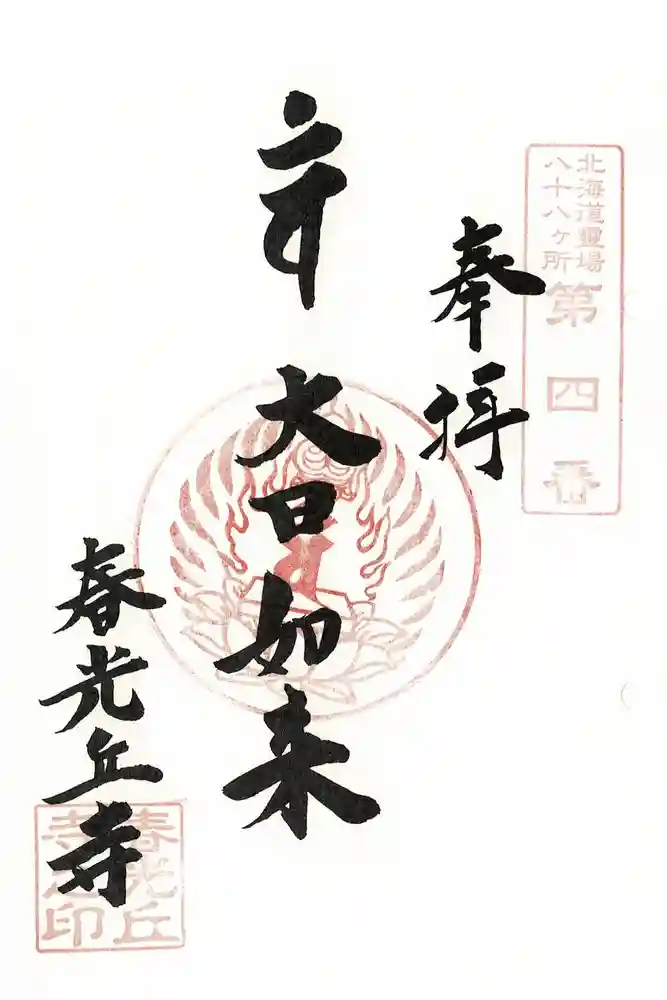 北海道霊場
八十八ヶ所
第四番
奉拝
大日如来
春光丘寺
春光丘
寺之印